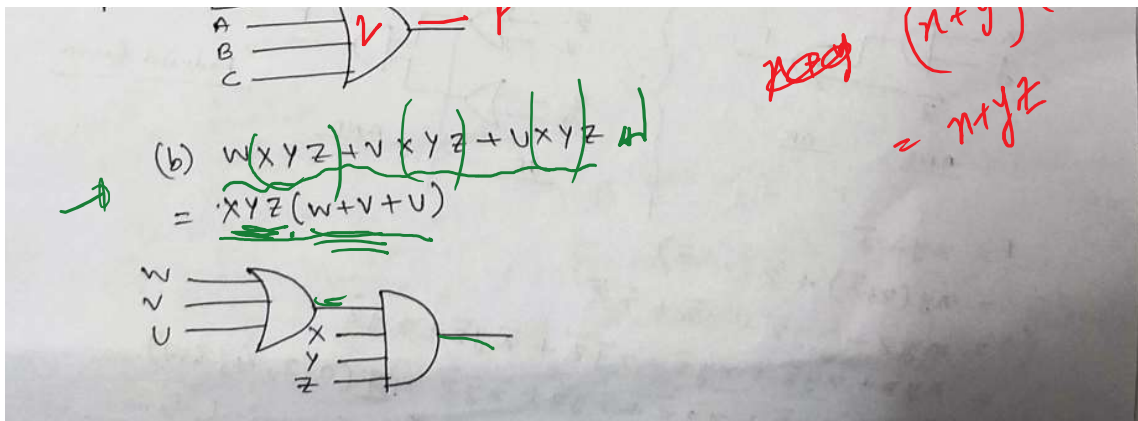 A
B
C
(x+y)
= x+yz
(b) WXYZ + VXYZ + UXYZ
= XYZ(W+V+U)
W
V
U
X
Y
Z